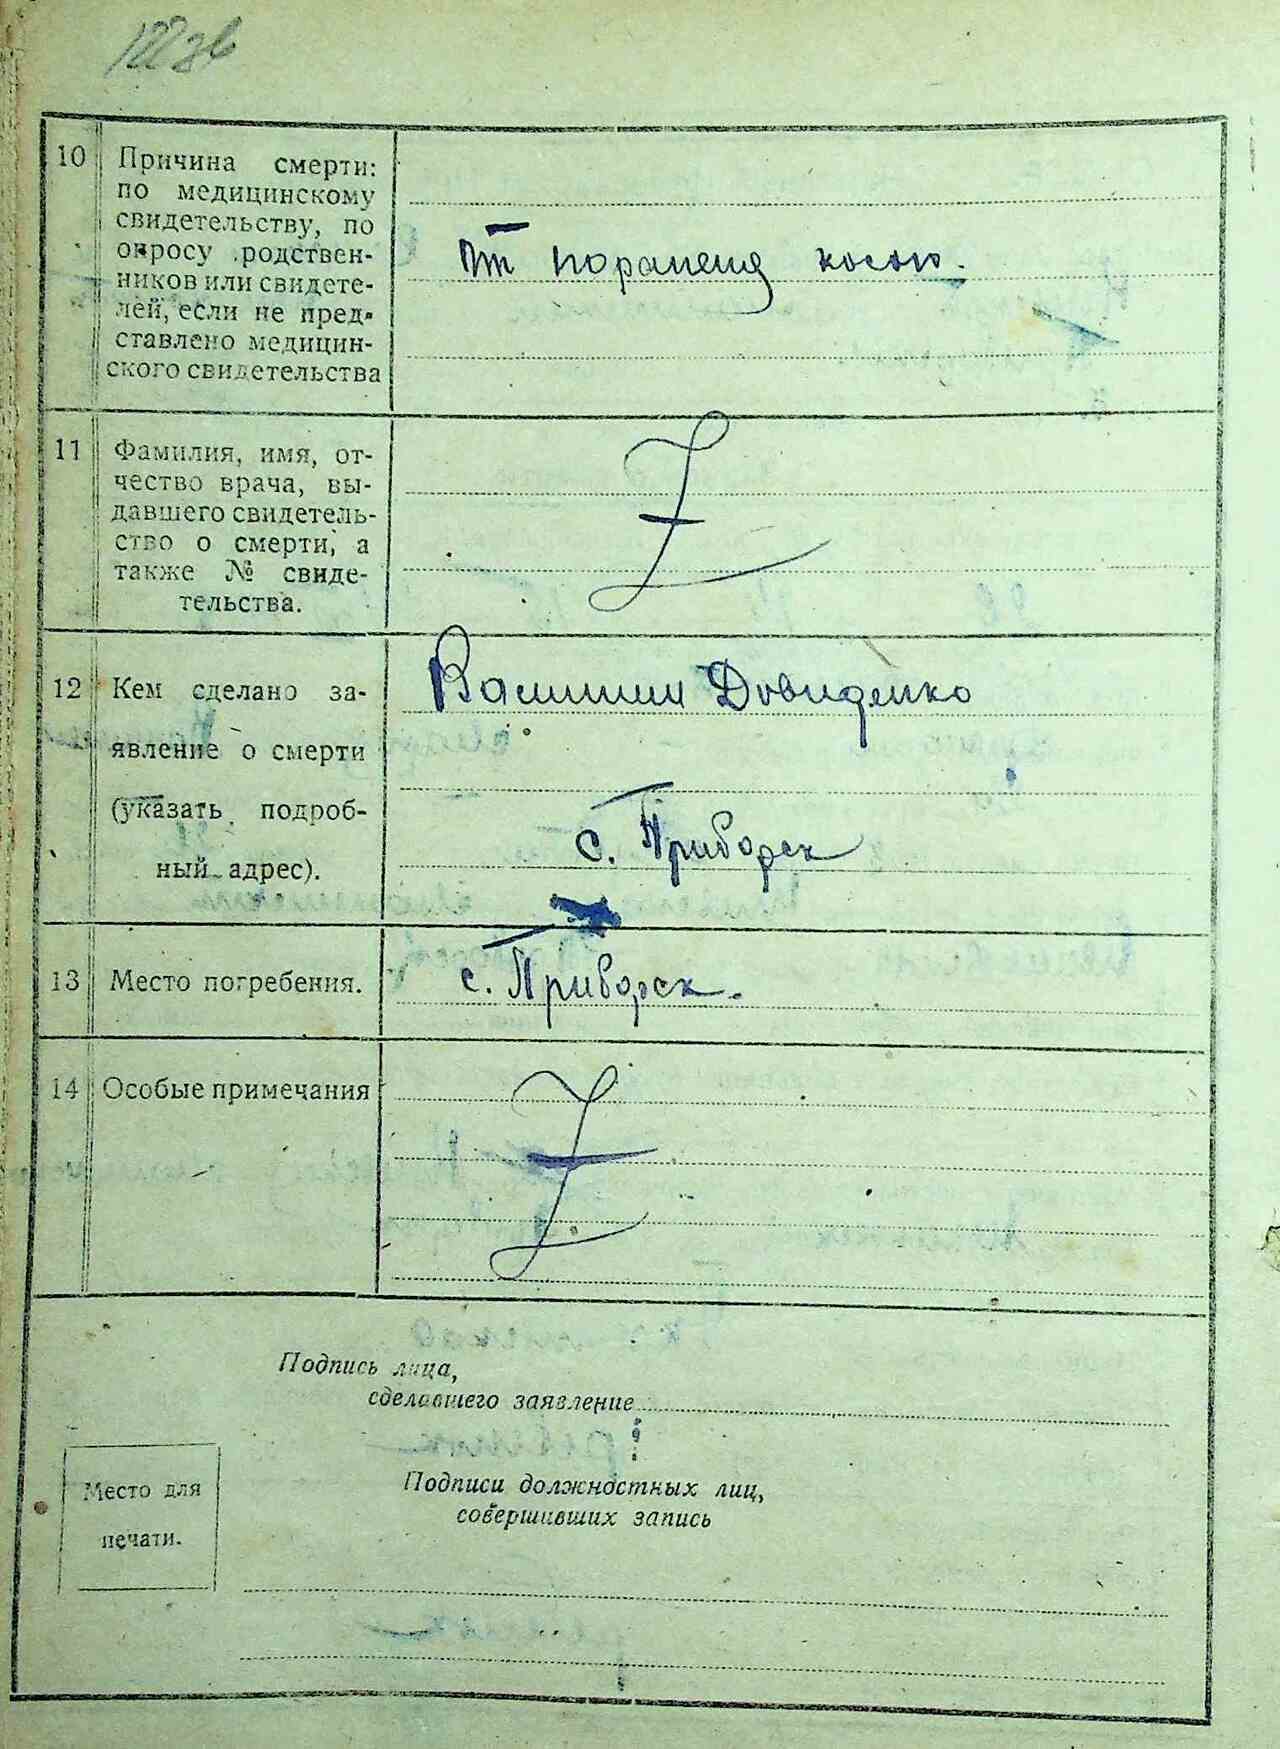 122зв
10 Причина смерти:
по медицинскому
свидетельству, по
опросу родствен-
ников или свидете-
лей, если не пред-
ставлено медицин-
ского свидетельства
От пораненя косою.
11 Фамилия, имя, от-
чество врача, вы-
давшего свидетель-
ство о смерти, а
также № свиде-
тельства.
Z
12 Кем сделано за-
явление о смерти
(указать подроб-
ный адрес).
Довиденко
с. Приборск
13 Место погребения.
с. Приборск.
14 Особые примечания
Z
Подпись лица,
сделавшего заявление
Место для
печати.
Подписи должностных лиц,
совершивших запись